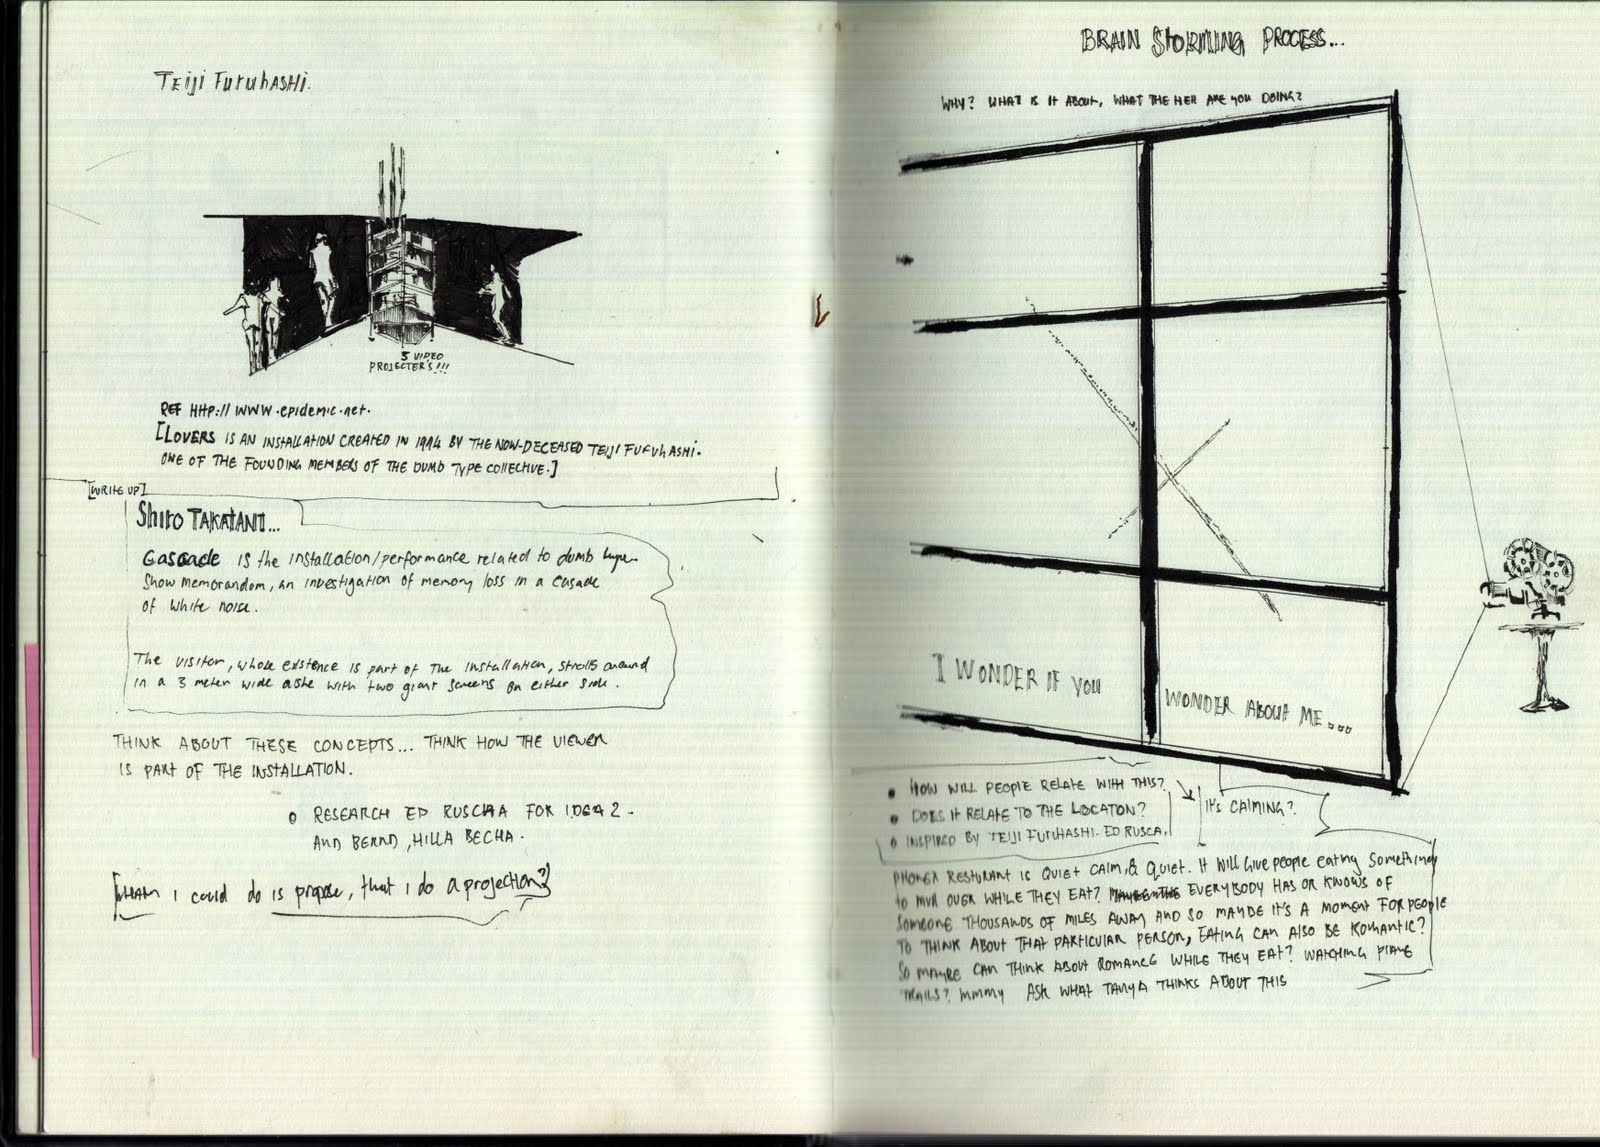 Teiji Furuhashi.
5 VIDEO
PROJECTER'S!!!
REF HHP://WWW.epidemic.net.
[LOVERS IS AN INSTALLATION CREATED IN 1994 BY THE NOW-DECEASED TEIJI FURUHASHI.
ONE OF THE FOUNDING MEMBERS OF THE DUMB TYPE COLLECTIVE.]
[WRITE UP]
Shiro TAKATANI...
Cascade is the installation/performance related to dumb type
show memorandom, an investigation of memory loss in a casade
of white noise.
The visitor, whose existence is part of the installation, strolls around
in a 3 meter wide with two giant screens on either side.
THINK ABOUT THESE CONCEPTS... THINK HOW THE VIEWER
IS PART OF THE INSTALLATION.
RESEARCH ED RUSCHA FOR IDEA 2.
AND BERND, HILLA BECHA.
[WHAT I could do is propose, that i do a projection?]
BRAIN STORMING PROCESS...
WHY? WHAT IS IT ABOUT, WHAT THE HELL ARE YOU DOING?
I WONDER IF YOU
WONDER ABOUT ME...
• HOW WILL PEOPLE RELATE WITH THIS?
• DOES IT RELATE TO THE LOCATION?
• INSPIRED BY TEIJI FURUHASHI. ED RUSCA.
IT'S CALMING?
RESTURANT IS QUIET CALM & QUIET. IT Will Give people eating Something
to MULL OVER WHILE THEY EAT? EVERYBODY HAS OR KNOWS OF
SOMEONE THOUSANDS OF MILES AWAY AND SO MAYBE IT'S A MOMENT FOR PEOPLE
TO THINK ABOUT THAT PARTICULAR PERSON, EATING CAN ALSO BE ROMANTIC?
SO MAYBE CAN THINK ABOUT ROMANCE WHILE THEY EAT? WATCHING PLANE
TRAILS? MMMY ASK WHAT TANYA THINKS ABOUT THIS